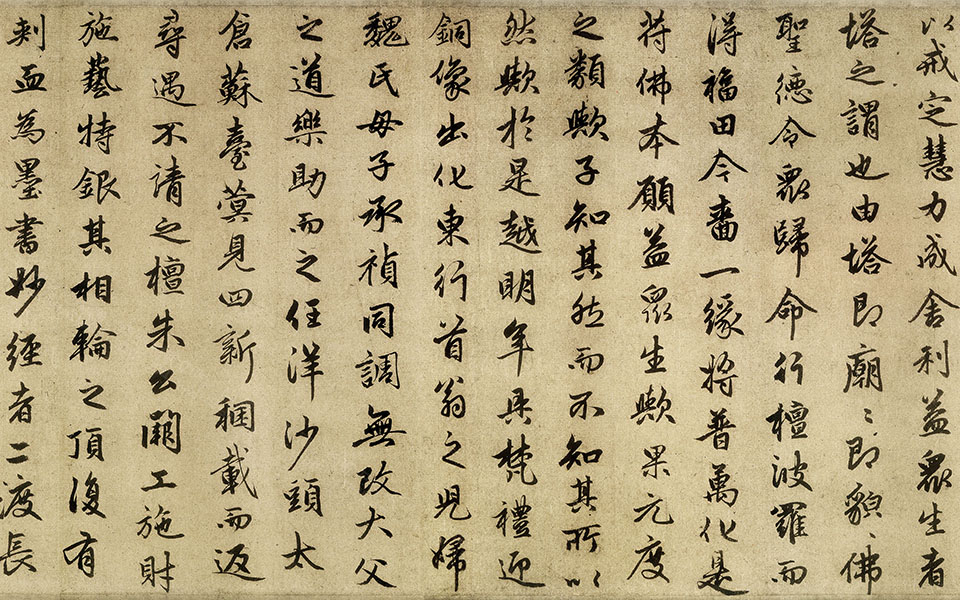 以戒定慧力成舍利益眾生者
塔之謂也由塔即廟〻即貌〻佛
聖德令眾歸命行檀波羅而
得福田今嗇一緣將普萬化是
符佛本願益眾生歟果元度
之類歟子知其然而不知其所以
然歟於是越明年具梵禮迎
銅像出化東行首翁之兒婦
魏氏母子承禎同調無改大父
之道樂助而之任洋沙頭太
倉蘇臺蓂見四新稇載而返
尋遇不請之檀朱公關工施財
施藝特銀其相輪之頂復有
刺血為墨書妙經者二渡長